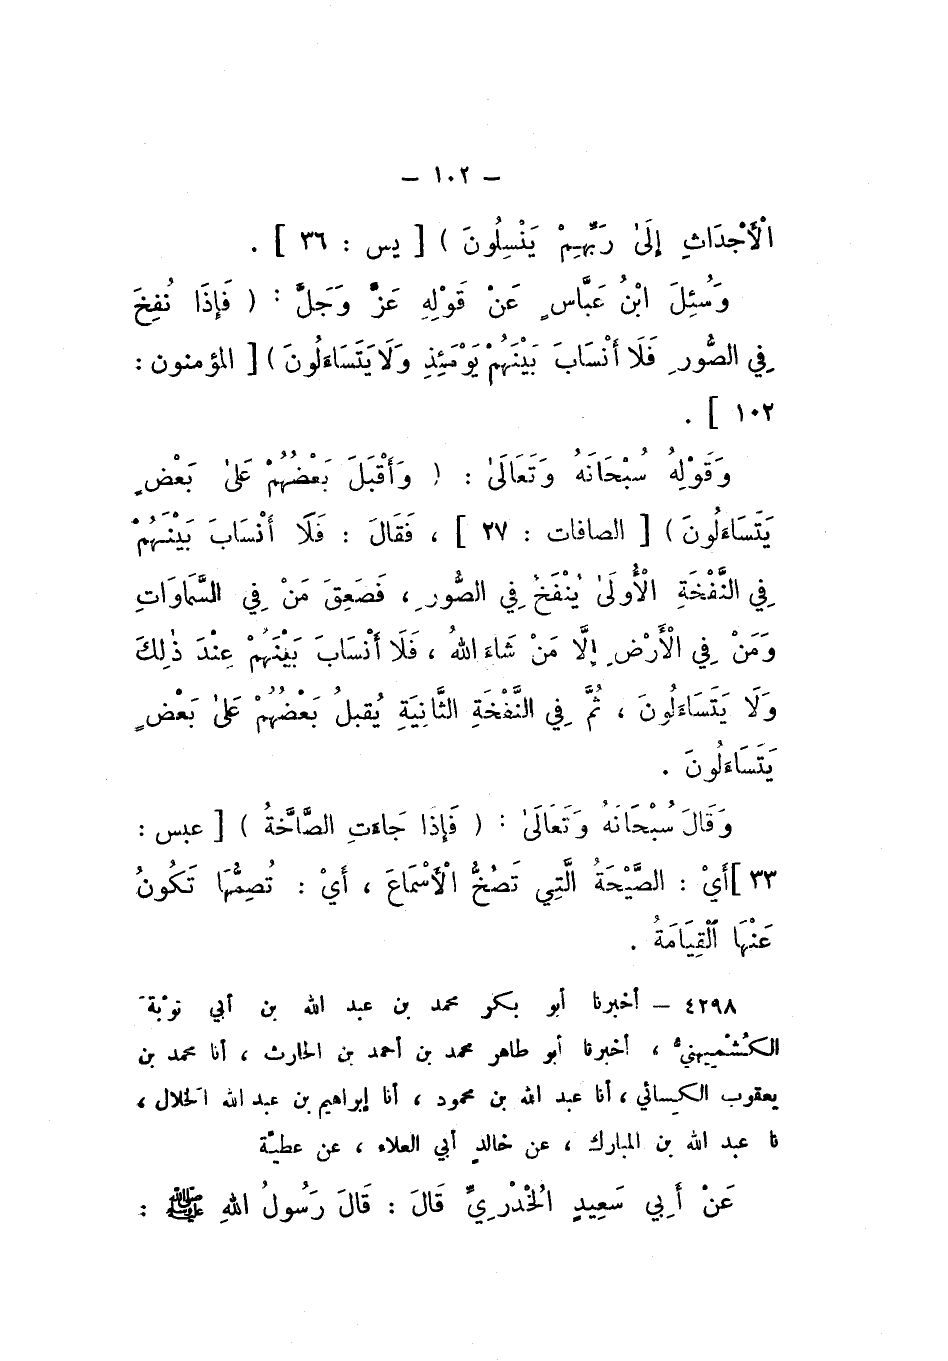 – ١٠٢ –
الْأَجْدَاثِ إِلَىٰ رَبِّهِمْ يَنْسِلُونَ ) [ يس : ٣٦ ] .
وَسُئِلَ ابْنُ عَبَّاسٍ عَنْ قَوْلِهِ عَزَّ وَجَلَّ : ( فَإِذَا نُفِخَ
فِي الصُّورِ فَلَا أَنْسَابَ بَيْنَهُمْ يَوْمَئِذٍ وَلَا يَتَسَاءَلُونَ ) [ المؤمنون :
١٠٢ ] .
وَقَوْلِهِ سُبْحَانَهُ وَتَعَالَىٰ : ( وَأَقْبَلَ بَعْضُهُمْ عَلَىٰ بَعْضٍ
يَتَسَاءَلُونَ ) [ الصافات : ٢٧ ] ، فَقَالَ : فَلَا أَنْسَابَ بَيْنَهُمْ
فِي النَّفْخَةِ الْأُولَىٰ يُنْفَخُ فِي الصُّورِ ، فَصَعِقَ مَنْ فِي السَّمَاوَاتِ
وَمَنْ فِي الْأَرْضِ إِلَّا مَنْ شَاءَ اللهُ ، فَلَا أَنْسَابَ بَيْنَهُمْ عِنْدَ ذٰلِكَ
وَلَا يَتَسَاءَلُونَ ، ثُمَّ فِي النَّفْخَةِ الثَّانِيَةِ يُقبلُ بَعْضُهُمْ عَلَىٰ بَعْضٍ
يَتَسَاءَلُونَ .
وَقَالَ سُبْحَانَهُ وَتَعَالَىٰ : ( فَإِذَا جَاءَتِ الصَّاخَّةُ ) [ عبس :
٣٣ ] أَيْ : الصَّيْحَةُ الَّتِي تَصُخُّ الْأَسْمَاعَ ، أَيْ : تُصِمُّهَا تَكُونُ
عَنْهَا الْقِيَامَةُ .
٤٢٩٨ – أخبرنا أبو بكر محمد بن عبد الله بن أبي توْبةَ
الكُشْمِيهني ، أخبرنا أبو طاهر محمد بن أحمد بن الحارث ، أنا محمد بن
يعقوب الكسائي ، أنا عبد الله بن محمود ، أنا إبراهيم بن عبد الله الخلال ،
نا عبد الله بن المبارك ، عن خالدٍ أبي العلاء ، عن عطيّة
عَنْ أَبِي سَعِيدٍ الْخُدْرِيِّ قَالَ : قَالَ رَسُولُ اللهِ ﷺ :